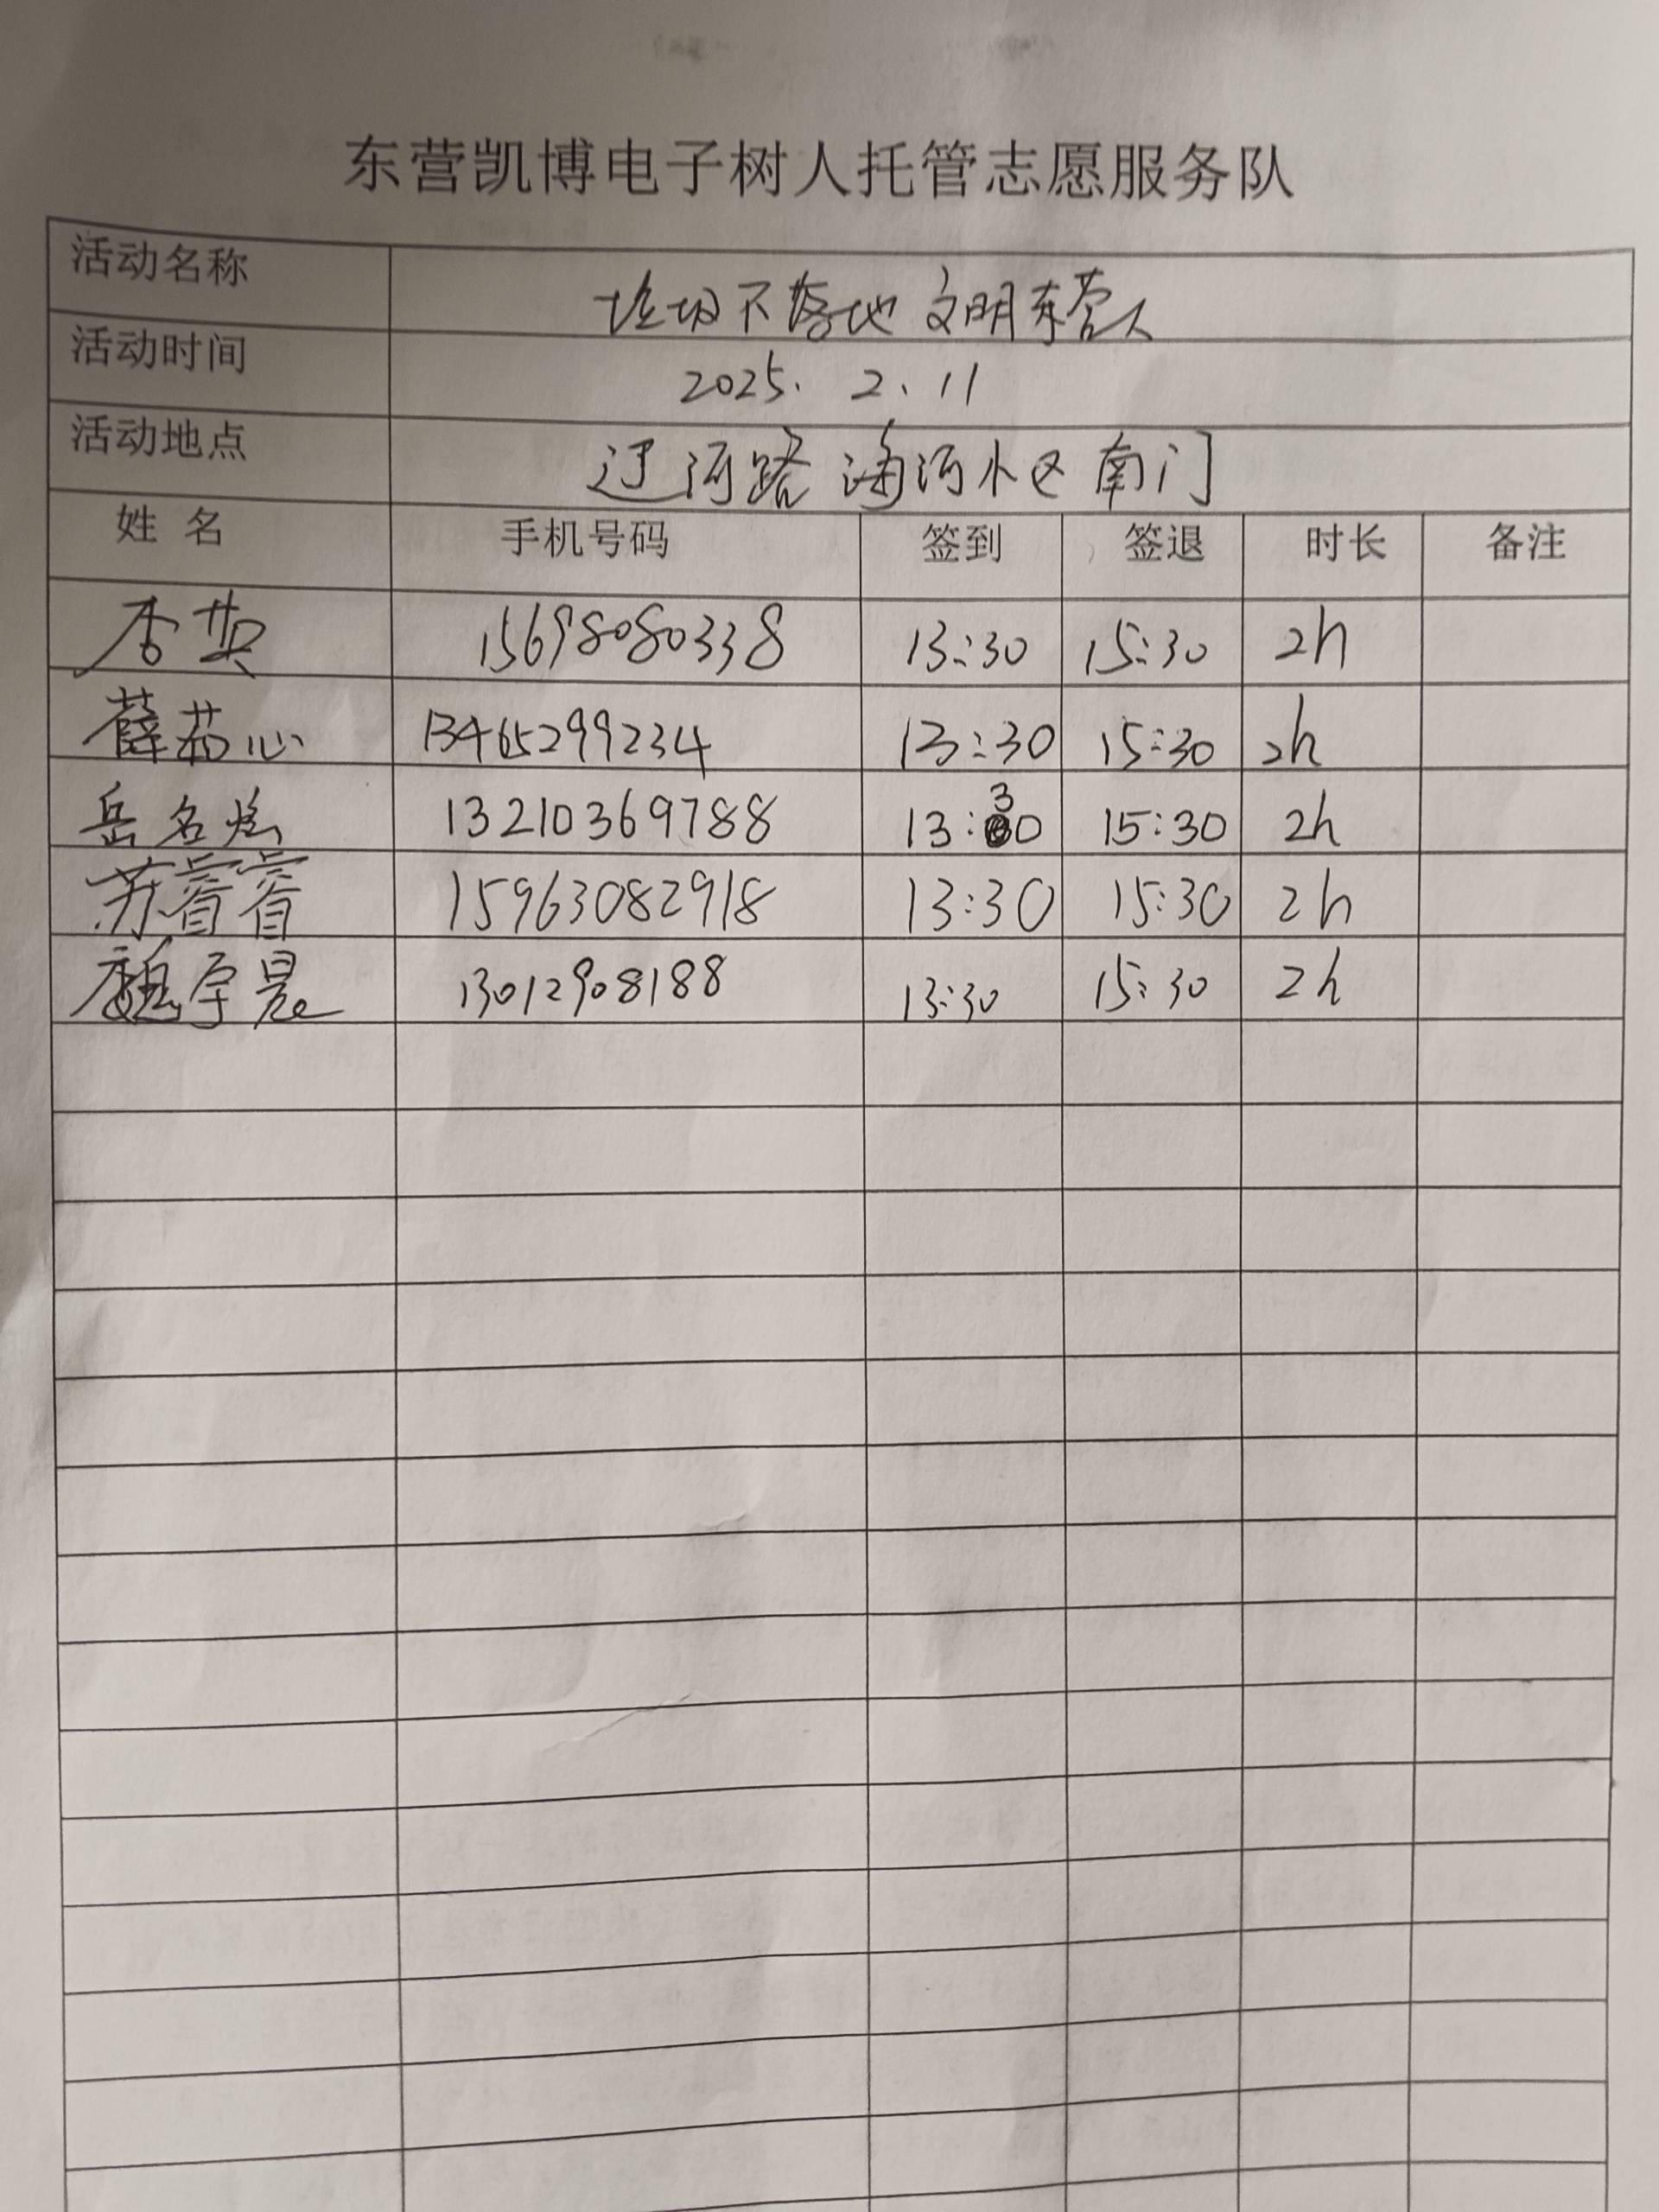 东营凯博电子树人托管志愿服务队
活动名称 垃圾不落地 文明东营人
活动时间 2025. 2. 11
活动地点 辽河路 海河小区南门
姓 名 手机号码 签到 签退 时长 备注
李英 15698080338 13:30 15:30 2h
薛茹心 13465299234 13:30 15:30 2h
岳名炫 13210369788 13:30 15:30 2h
苏睿睿 15963082918 13:30 15:30 2h
魏宇晨 13012908188 13:30 15:30 2h